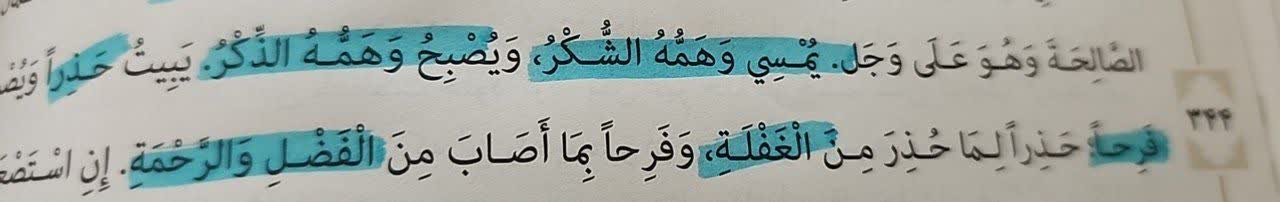 الصَّالِحَةَ وَهُوَ عَلَى وَجَل. يُمْسِي وَهَمُّهُ الشُّكْرُ، وَيُصْبِحُ وَهَمُّهُ الذِّكْرُ. يَبِيتُ حَذِراً
فَرِحاً؛ حَذِراً لِمَا حُذِرَ مِنَ الْغَفْلَةِ، وَفَرِحاً بِمَا أَصَابَ مِنَ الْفَضْلِ وَالرَّحْمَةِ. إِنِ
۳۴۴